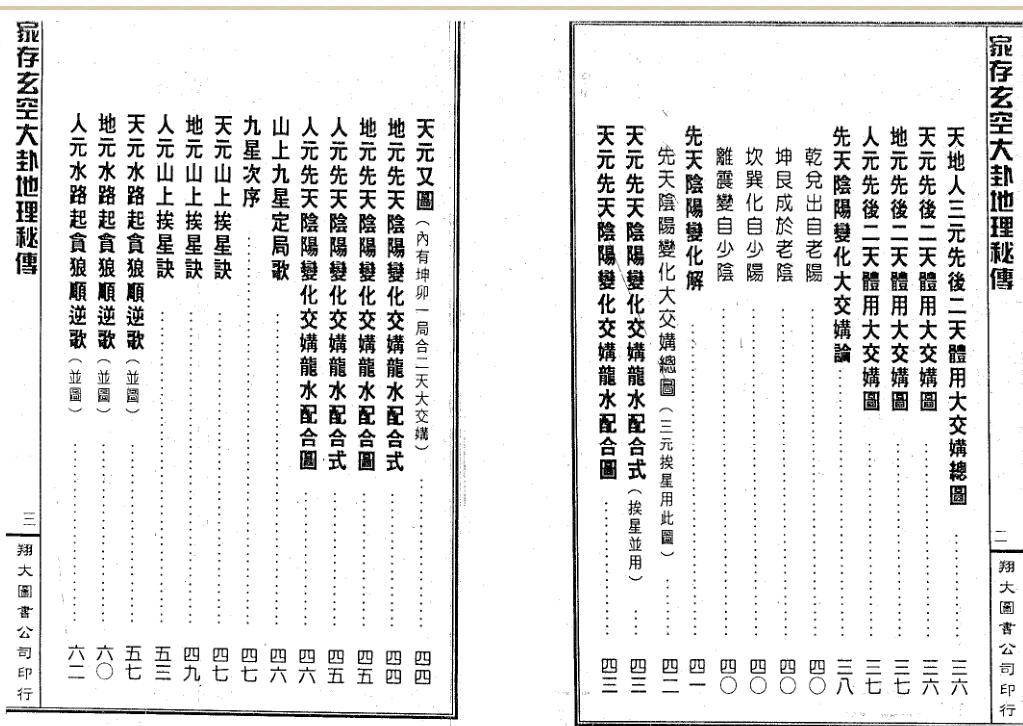 家存玄空大卦地理秘傳
二
翔大圖書公司印行
天地人三元先後二天體用大交媾總圖 三六
天元先後二天體用大交媾圖 三六
地元先後二天體用大交媾圖 三七
人元先後二天體用大交媾圖 三七
先天陰陽變化大交媾論 三八
乾兌出自老陽 四〇
坤艮成於老陰 四〇
坎巽化自少陽 四〇
離震變自少陰 四〇
先天陰陽變化解 四一
先天陰陽變化大交媾總圖(三元挨星用此圖) 四二
天元先天陰陽變化交媾龍水配合式(挨星並用) 四三
天元先天陰陽變化交媾龍水配合圖 四三
天元又圖(內有坤卯一局合二天大交媾) 四四
地元先天陰陽變化交媾龍水配合式 四四
地元先天陰陽變化交媾龍水配合圖 四五
人元先天陰陽變化交媾龍水配合式 四五
人元先天陰陽變化交媾龍水配合圖 四六
山上九星定局歌 四六
九星次序 四七
天元山上挨星訣 四七
地元山上挨星訣 四九
人元山上挨星訣 五三
天元水路起貪狼順逆歌(並圖) 五七
地元水路起貪狼順逆歌(並圖) 六〇
人元水路起貪狼順逆歌(並圖) 六二
家存玄空大卦地理秘傳
三
翔大圖書公司印行